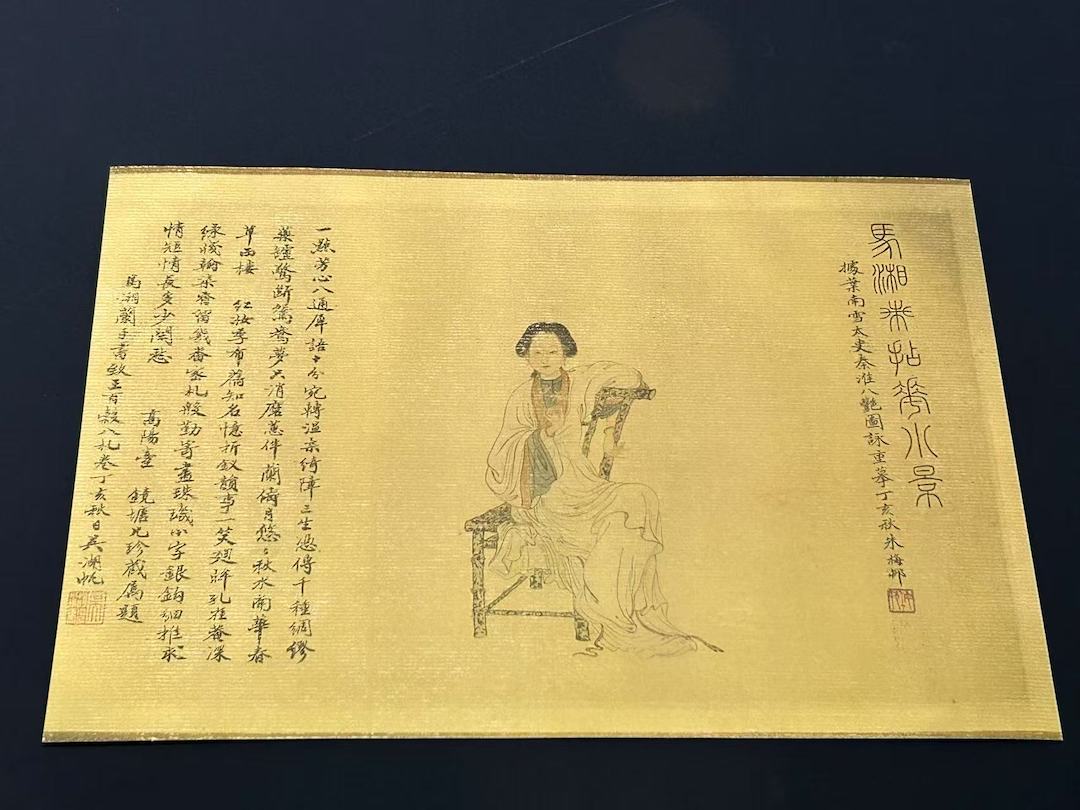 馬湘拈花小景
據葉南雪太史秦淮八艷圖詠重摹丁亥秋朱梅邨
一點芳心八通犀語十分宛轉溫柔綺障三生憑傳千種綢繆
藥爐驚斷鴛鴦夢只消磨蕙伴蘭儔自悠悠秋水南華春
草西樓 紅妝季布舊知名憶折釵韻事一笑廻眸孔雀菴深
綠牋翰染香留幾番密札殷勤寄盡珠璣小字銀鉤細推求
情短情長多少閒愁
高陽臺 鏡塘兄珍藏屬題
馬湘蘭手書致王百穀八札卷丁亥秋日吳湖帆